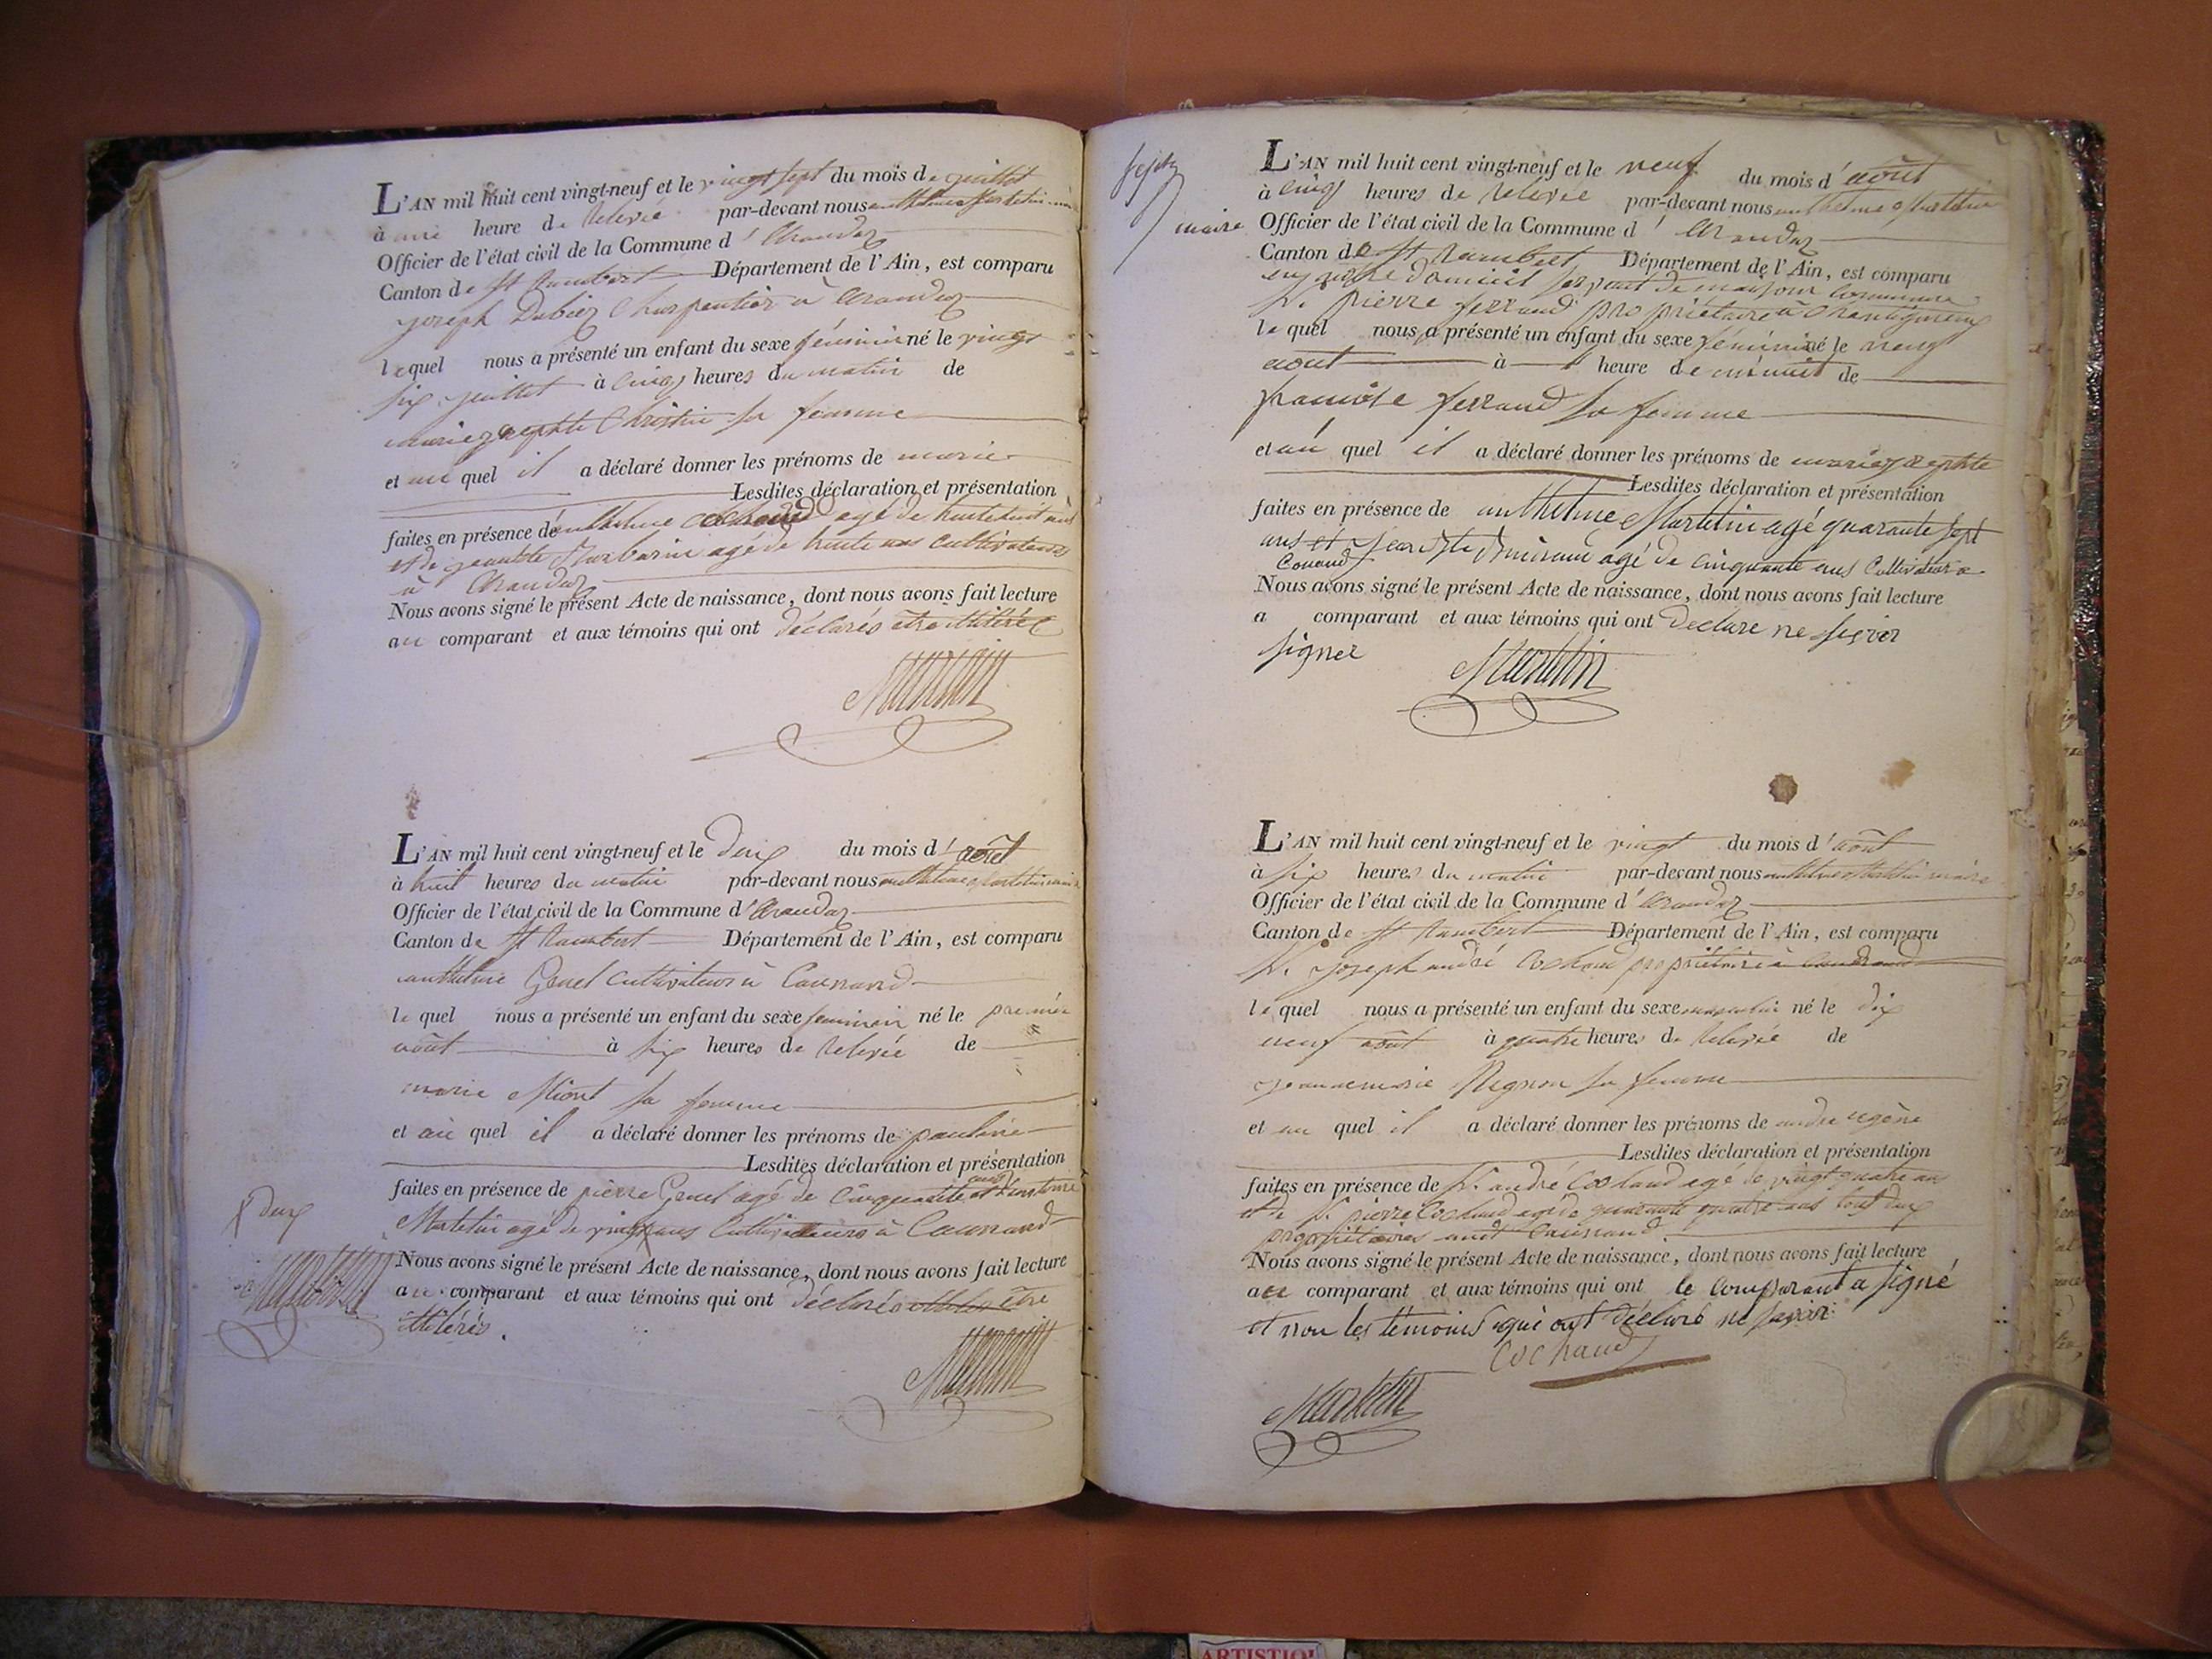 L'AN mil huit cent vingt-neuf et le vingt sept du mois de juillet
à une heure de Relevée par-devant nous anthelme Martelin
Officier de l'état civil de la Commune d'Arandaz
Canton de St Rambert Département de l'Ain, est comparu
joseph Dubiez Charpentier à Arandaz
lequel nous a présenté un enfant du sexe féminin né le vingt
six juillet à cinq heures du matin de
Christin sa femme
et au quel il a déclaré donner les prénoms de marie
Lesdites déclaration et présentation
faites en présence de anthelme Cochaud agé de ans
et de agé de trente ans Cultivateurs
à Arandaz
Nous avons signé le présent Acte de naissance, dont nous avons fait lecture
au comparant et aux témoins qui ont déclarés être illitéré
Martelin
L'AN mil huit cent vingt-neuf et le Deux du mois d'août
à huit heures du matin par-devant nous anthelme Martelin maire
Officier de l'état civil de la Commune d'Arandaz
Canton de St Rambert Département de l'Ain, est comparu
anthelme Genel cultivateur à
lequel nous a présenté un enfant du sexe feminin né le premier
août à six heures de Relevée de
marie sa femme
et au quel il a déclaré donner les prénoms de pauline
Lesdites déclaration et présentation
faites en présence de pierre Genel agé de cinquante ans et d'antoine
Martelin agé de vingt ans Cultivateurs à
deux
Nous avons signé le présent Acte de naissance, dont nous avons fait lecture
au comparant et aux témoins qui ont déclarés être
illitérés.
Martelin
Martelin
L'AN mil huit cent vingt-neuf et le neuf du mois d'août
à cinq heures de Relevée par-devant nous anthelme Martelin
maire Officier de l'état civil de la Commune d'Arandaz
Canton de St Rambert Département de l'Ain, est comparu
en notre Domicil servant de maison Commune
Sr pierre ferrand propriétaire à
lequel nous a présenté un enfant du sexe féminin né le neuf
août à heure de minuit de
francoise ferrand sa femme
et au quel il a déclaré donner les prénoms de
Lesdites déclaration et présentation
faites en présence de anthelme Martelin agé quarante sept
ans et agé de cinquante ans Cultivateur a
Nous avons signé le présent Acte de naissance, dont nous avons fait lecture
a comparant et aux témoins qui ont Declare ne
signer
Martelin
L'AN mil huit cent vingt-neuf et le vingt du mois d'août
à six heures du matin par-devant nous anthelme Martelin maire
Officier de l'état civil de la Commune d'Arandaz
Canton de St Rambert Département de l'Ain, est comparu
Sr joseph andré Cochaud propriétaire à
lequel nous a présenté un enfant du sexe masculin né le dix
neuf août à quatre heures de Relevée de
jeannemarie sa femme
et au quel il a déclaré donner les prénoms de andre
Lesdites déclaration et présentation
faites en présence de Sr andré Cochaud agé de vingt quatre ans
et de Sr pierre Cochaud agé de quarante quatre ans tout deux
propriétaires audit
Nous avons signé le présent Acte de naissance, dont nous avons fait lecture
au comparant et aux témoins qui ont le comparant a signé
et non les témoins qui ont Déclaré ne savoir
Cochaud
Martelin
ARTISTIQ